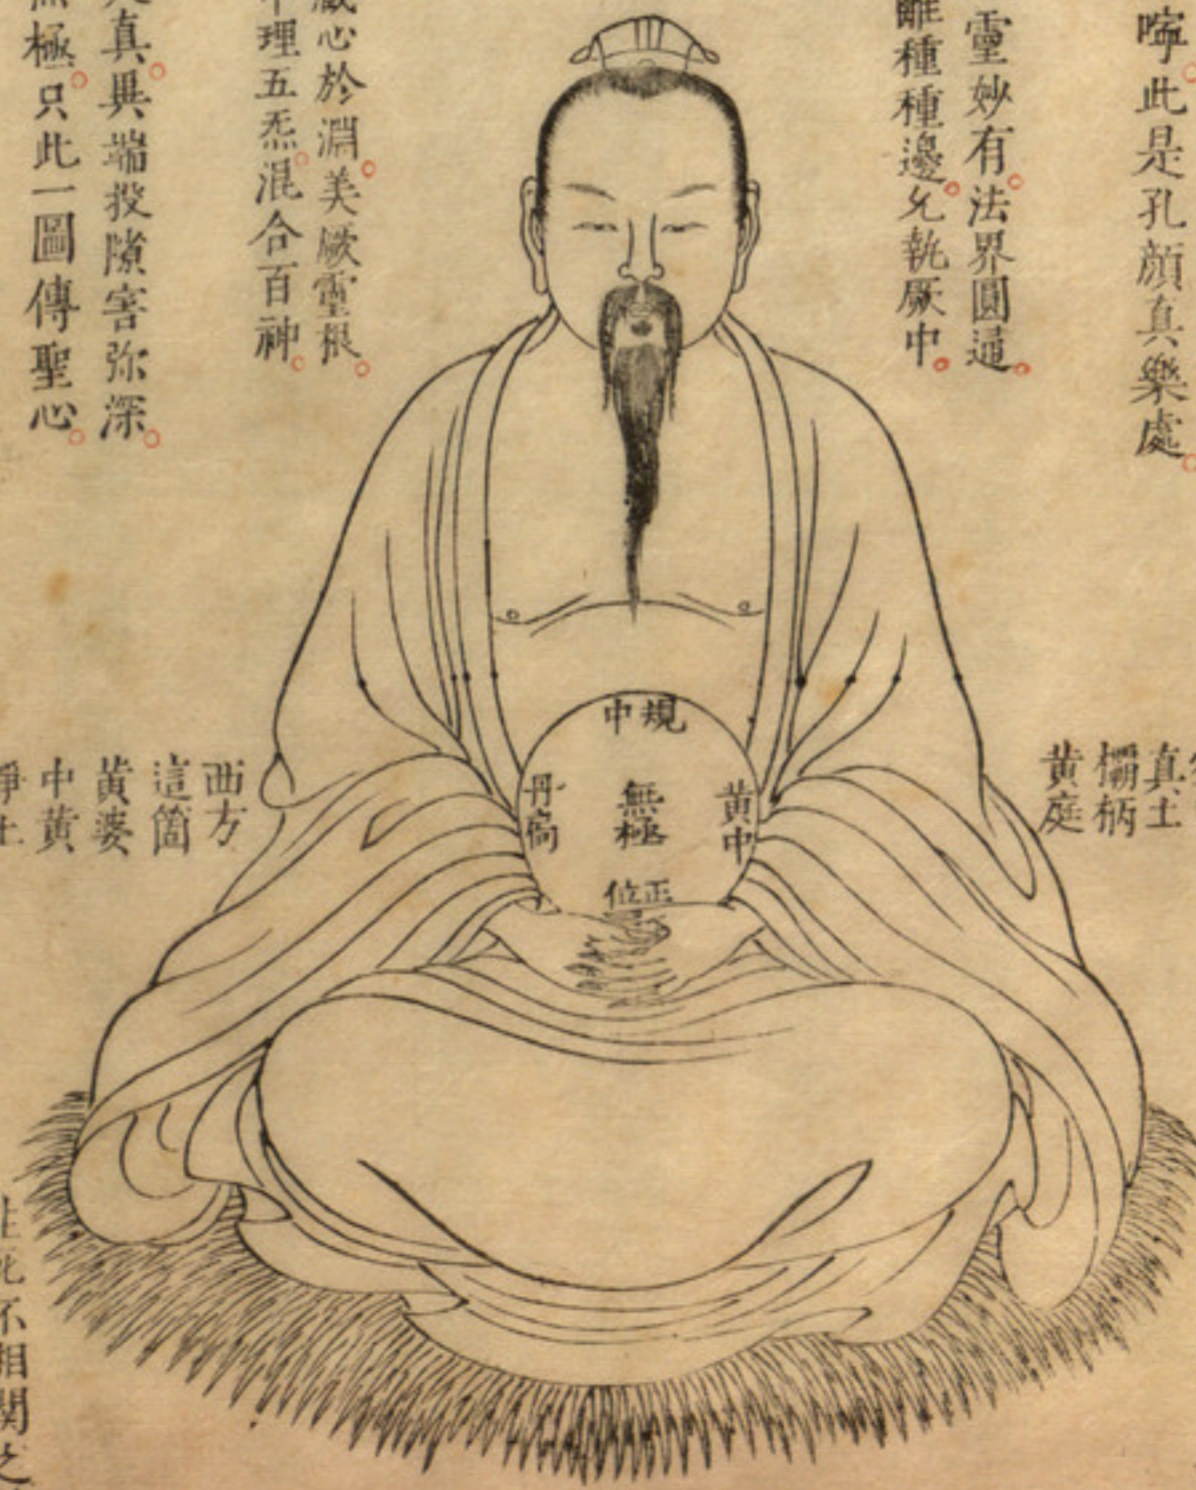 嚀此是孔顏真樂處
靈妙有法界圓通
種種邊允執厥中
藏心於淵美厥靈根
理五炁混合百神
真異端投隙害弥深
極只此一圖傳聖心
真土
欛柄
黄庭
規中
黄中
無極
丹扃
正位
西方
這箇
黃婆
中黄
淨土
死不相関之